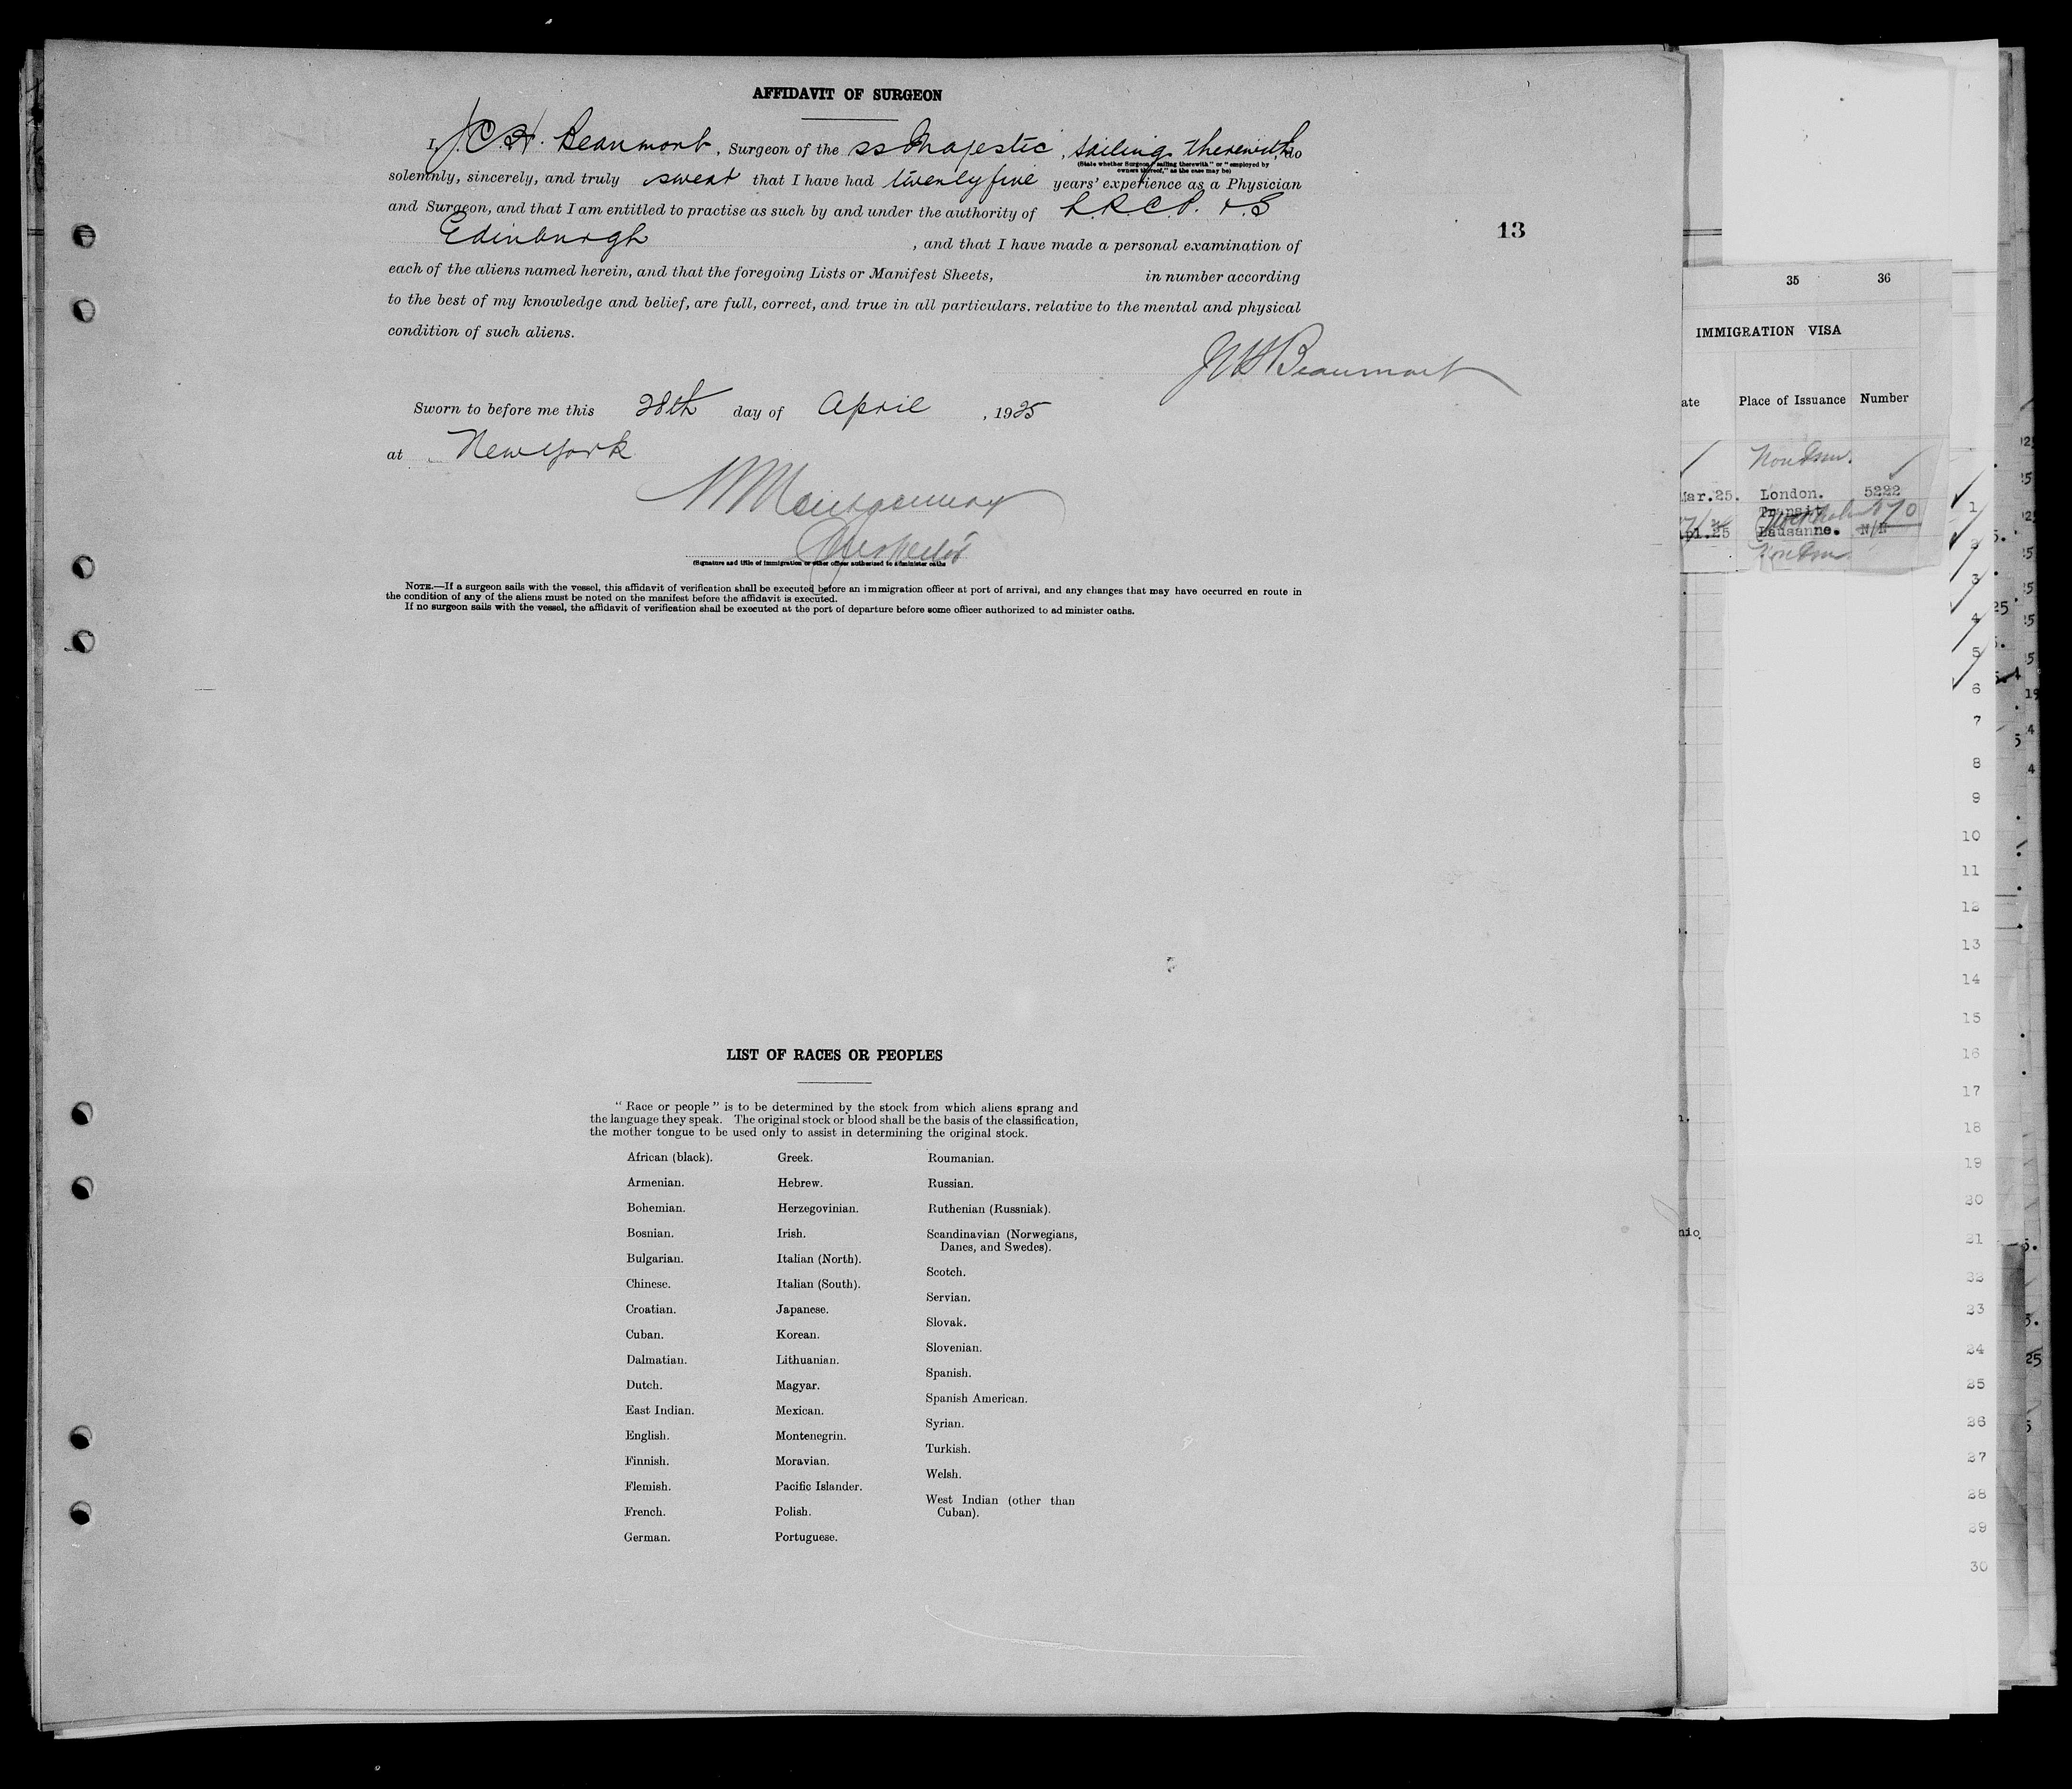 AFFIDAVIT OF SURGEON
I, J.C.H. Beaumont, Surgeon of the ss Majestic, sailing therewith, do
(State whether Surgeon "sailing therewith" or "employed by
owners thereof," as the case may be)
solemnly, sincerely, and truly swear that I have had twenty five years' experience as a Physician
and Surgeon, and that I am entitled to practise as such by and under the authority of L.R.C.P. & S
Edinburgh, and that I have made a personal examination of
each of the aliens named herein, and that the foregoing Lists or Manifest Sheets, in number according
to the best of my knowledge and belief, are full, correct, and true in all particulars, relative to the mental and physical
condition of such aliens.
JCH Beaumont
Sworn to before me this 28th day of April, 1925
at New York
Montgomery
Inspector
(Signature and title of immigration or other officer authorized to administer oaths
NOTE.—If a surgeon sails with the vessel, this affidavit of verification shall be executed before an immigration officer at port of arrival, and any changes that may have occurred en route in
the condition of any of the aliens must be noted on the manifest before the affidavit is executed.
If no surgeon sails with the vessel, the affidavit of verification shall be executed at the port of departure before some officer authorized to ad minister oaths.
13
LIST OF RACES OR PEOPLES
"Race or people" is to be determined by the stock from which aliens sprang and
the language they speak. The original stock or blood shall be the basis of the classification,
the mother tongue to be used only to assist in determining the original stock.
African (black).
Armenian.
Bohemian.
Bosnian.
Bulgarian.
Chinese.
Croatian.
Cuban.
Dalmatian.
Dutch.
East Indian.
English.
Finnish.
Flemish.
French.
German.
Greek.
Hebrew.
Herzegovinian.
Irish.
Italian (North).
Italian (South).
Japanese.
Korean.
Lithuanian.
Magyar.
Mexican.
Montenegrin.
Moravian.
Pacific Islander.
Polish.
Portuguese.
Roumanian.
Russian.
Ruthenian (Russniak).
Scandinavian (Norwegians,
Danes, and Swedes).
Scotch.
Servian.
Slovak.
Slovenian.
Spanish.
Spanish American.
Syrian.
Turkish.
Welsh.
West Indian (other than
Cuban).
35 36
IMMIGRATION VISA
ate Place of Issuance Number
Mar.25. London. 5222
Transit
Lausanne. N/N
1
2
3
4
5
6
7
8
9
10
11
12
13
14
15
16
17
18
19
20
21
22
23
24
25
26
27
28
29
30